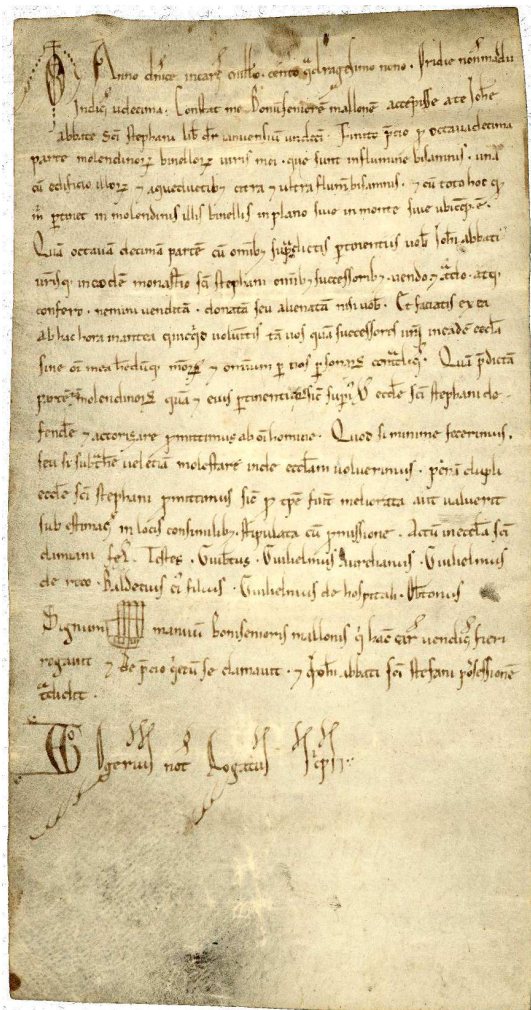 Anno dnice incarn millo. cento qdragesimo nono. Pridie nonas madii
Indic undecima. Constat me Boniseniore mallone accepisse a te Iohe
abbate sci stephani lib dr ianuensium undeci. Finito pcio p octavadecima
parte molendinor binellor iuris mei. que sunt in flumine bisamnis. una
cu edificio illor 7 aqueductib citra 7 ultra flum bisamnis. 7 cu toto hoc q
m ptinet in molendinis illis binellis in plano sive in monte sive ubicuq. e.
Qua octava decima parte cu omib supdictis ptinentiis vob Iohi abbati
vrisq in eode monastio sci stephani omib successorib. vendo. 7 tdo. atq
confero. nemini vendita. donata seu alienata nisi vob. Et faciatis ex ea
ab hac hora in antea quicqd volutis ta vos qua successores vri in eade eccla
sine oi mea hedumq meor 7 omnium p nos psonar contdic. Qua pdicta
parte molendinor qua 7 eius ptinentia sic sup eccle sci stephani de-
fende 7 actorizare pmittimus ab oi homine. Quod si minime fecerimus.
seu si subthe vel etia molestare inde ecclam voluerimus. pena dupli
eccle sci stephani pmittimus sic p tpe fuit meliorata aut valuerit
sub estimac in locis consimilib. stipulata cu pmissione. Actu in eccla sci
damiani fel. Testes. Guilielmus Aurelianus. Guilielmus
de reco. Baldecius ei filius. Guilielmus de hospitali. Obtonus
Signum manuu Bonisenioris mallonis q hac car vendic fieri
rogavit 7 de pcio qetu se clamavit. 7 Iohi abbati sci stefani possessione
tdidit.
Ego Ogerius not Rogatus scpsi